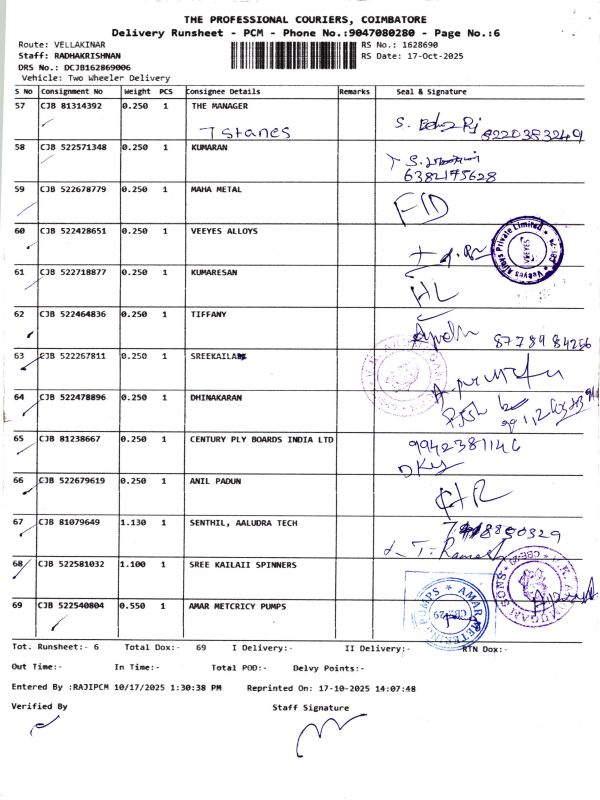 THE PROFESSIONAL COURIERS, COIMBATORE
Delivery Runsheet - PCM - Phone No.:9047080280 - Page No.:6
Route: VELLAKINAR RS No.: 1628690
Staff: RADHAKRISHNAN RS Date: 17-Oct-2025
DRS No.: DCJB162869006
Vehicle: Two Wheeler Delivery
S No Consignment No Weight PCS Consignee Details Remarks Seal & Signature
57 CJB 81314392 0.250 1 THE MANAGER
T stanes
8220383249
58 CJB 522571348 0.250 1 KUMARAN
6382175628
59 CJB 522678779 0.250 1 MAHA METAL
60 CJB 522428651 0.250 1 VEEYES ALLOYS
Veeyes Alloys Private Limited
VEEYES
61 CJB 522718877 0.250 1 KUMARESAN
HL
62 CJB 522464836 0.250 1 TIFFANY
63 CJB 522267811 0.250 1 SREEKAILASH
64 CJB 522478896 0.250 1 DHINAKARAN
65 CJB 81238667 0.250 1 CENTURY PLY BOARDS INDIA LTD
66 CJB 522679619 0.250 1 ANIL PADUN
67 CJB 81079649 1.130 1 SENTHIL, AALUDRA TECH
68 CJB 522581032 1.100 1 SREE KAILAII SPINNERS
69 CJB 522540804 0.550 1 AMAR METCRICY PUMPS
Tot. Runsheet:- 6 Total Dox:- 69 I Delivery:- II Delivery:- RTN Dox:-
Out Time:- In Time:- Total POD:- Delvy Points:-
Entered By :RAJIPCM 10/17/2025 1:30:38 PM Reprinted On: 17-10-2025 14:07:48
Verified By Staff Signature